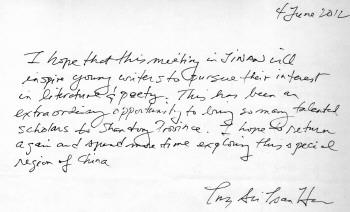 4 June 2012
I hope that this meeting in JINAN will
inspire young writers to pursue their interest
in literature & poetry. This has been an
extraordinary opportunity to bring so many talented
scholars to Shandong Province. I hope to return
again and spend more time exploring this special
region of China